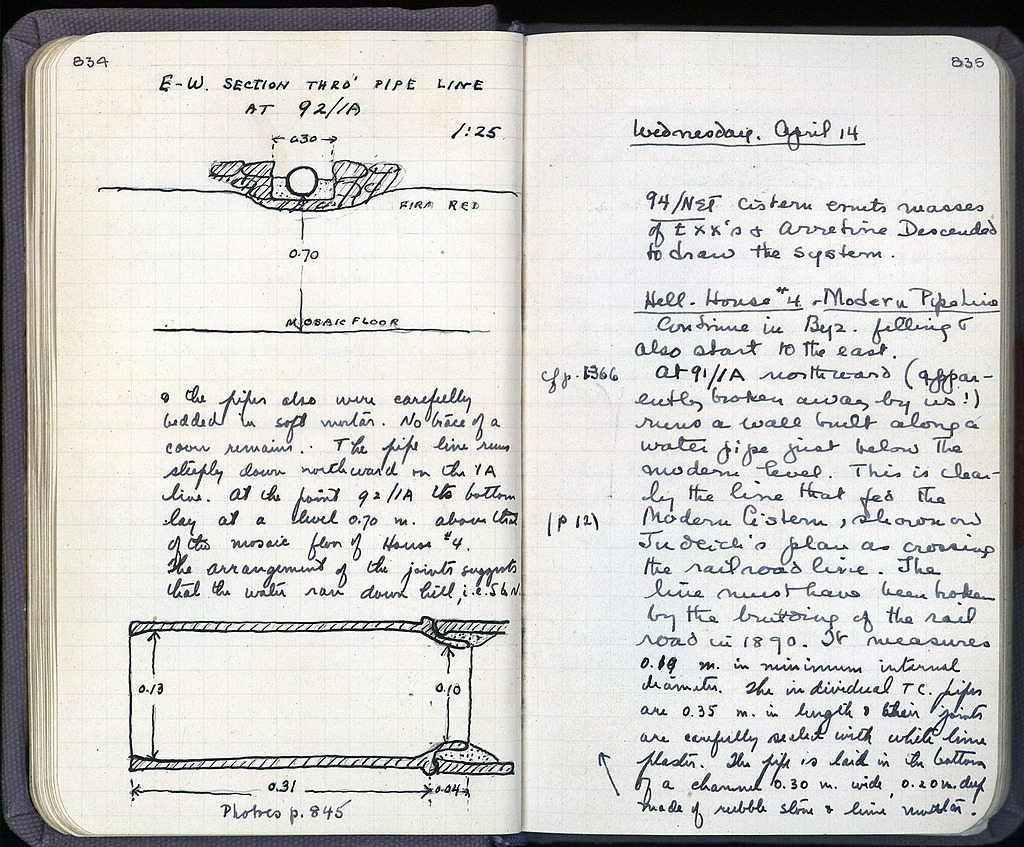 834
E-W. SECTION THRO' PIPE LINE
AT 92/1A
1:25
0.30
FIRM RED
0.70
MOSAIC FLOOR
& the pipes also were carefully
bedded in soft mortar. No trace of a
cover remains. The pipe line runs
steeply down northward on the 1A
line. At the point 92/1A its bottom
lay at a level 0.70 m. above that
of the mosaic floor of House #4.
The arrangement of the joints suggests
that the water ran down hill, i.e. S to N.
0.13
0.10
0.31
0.04
Photoes p. 845
835
Wednesday. April 14
94/NET Cistern emits masses
of EXX's & Arretine Descended
to draw the system.
Hell. House #4 - Modern Pipe Line
Continue in Byz. filling &
also start to the east.
cf p. 1366
At 91/1A northward (appar-
ently broken away by us!)
runs a wall built along a
water pipe just below the
modern level. This is clear-
ly the line that fed the
(p 12)
Modern Cistern, shown on
Judeich's plan as crossing
the railroad line. The
line must have been broken
by the building of the rail
road in 1890. It measures
0.10 m. in minimum internal
diameter. The individual TC. pipes
are 0.35 m. in length & their joints
are carefully sealed with white lime
plaster. The pipe is laid in the bottom
of a channel 0.30 m. wide, 0.20 m. deep
made of rubble stone & lime mortar.